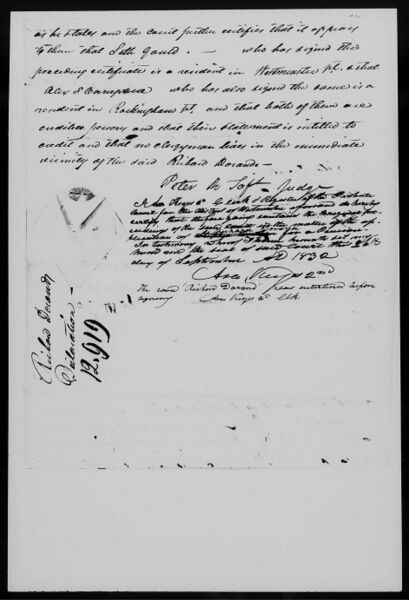 as he states and the court further certifies that it appears
to them that Seth Gould. — who has signed the
preceding certificate is a resident in Westminster Vt. & that
Alex S Campbell who has also signed the same is a
resident in Rockingham Vt. and that both of them are
credible persons and that their statement is entitled to
credit and that no Clergyman lives in the immediate
vicinity of the said Richard Durand —
Peter R Taft Judge
I Asa Keyes 2d Clerk & Register of the Probate
Court for the District of Westminster aforesaid do hereby
certify that the foregoing contains the original pro-
ceedings of the said court in the matter of the ap-
plication of for a Pension
In testimony whereof I have hereunto set my
hand and the seal of said court this
day of September AD 1832
Asa Keyes 2nd
The word "Richard Durand" was interlined before
signing Asa Keyes 2d Clk
Richard Durand
Declaration —
12.919